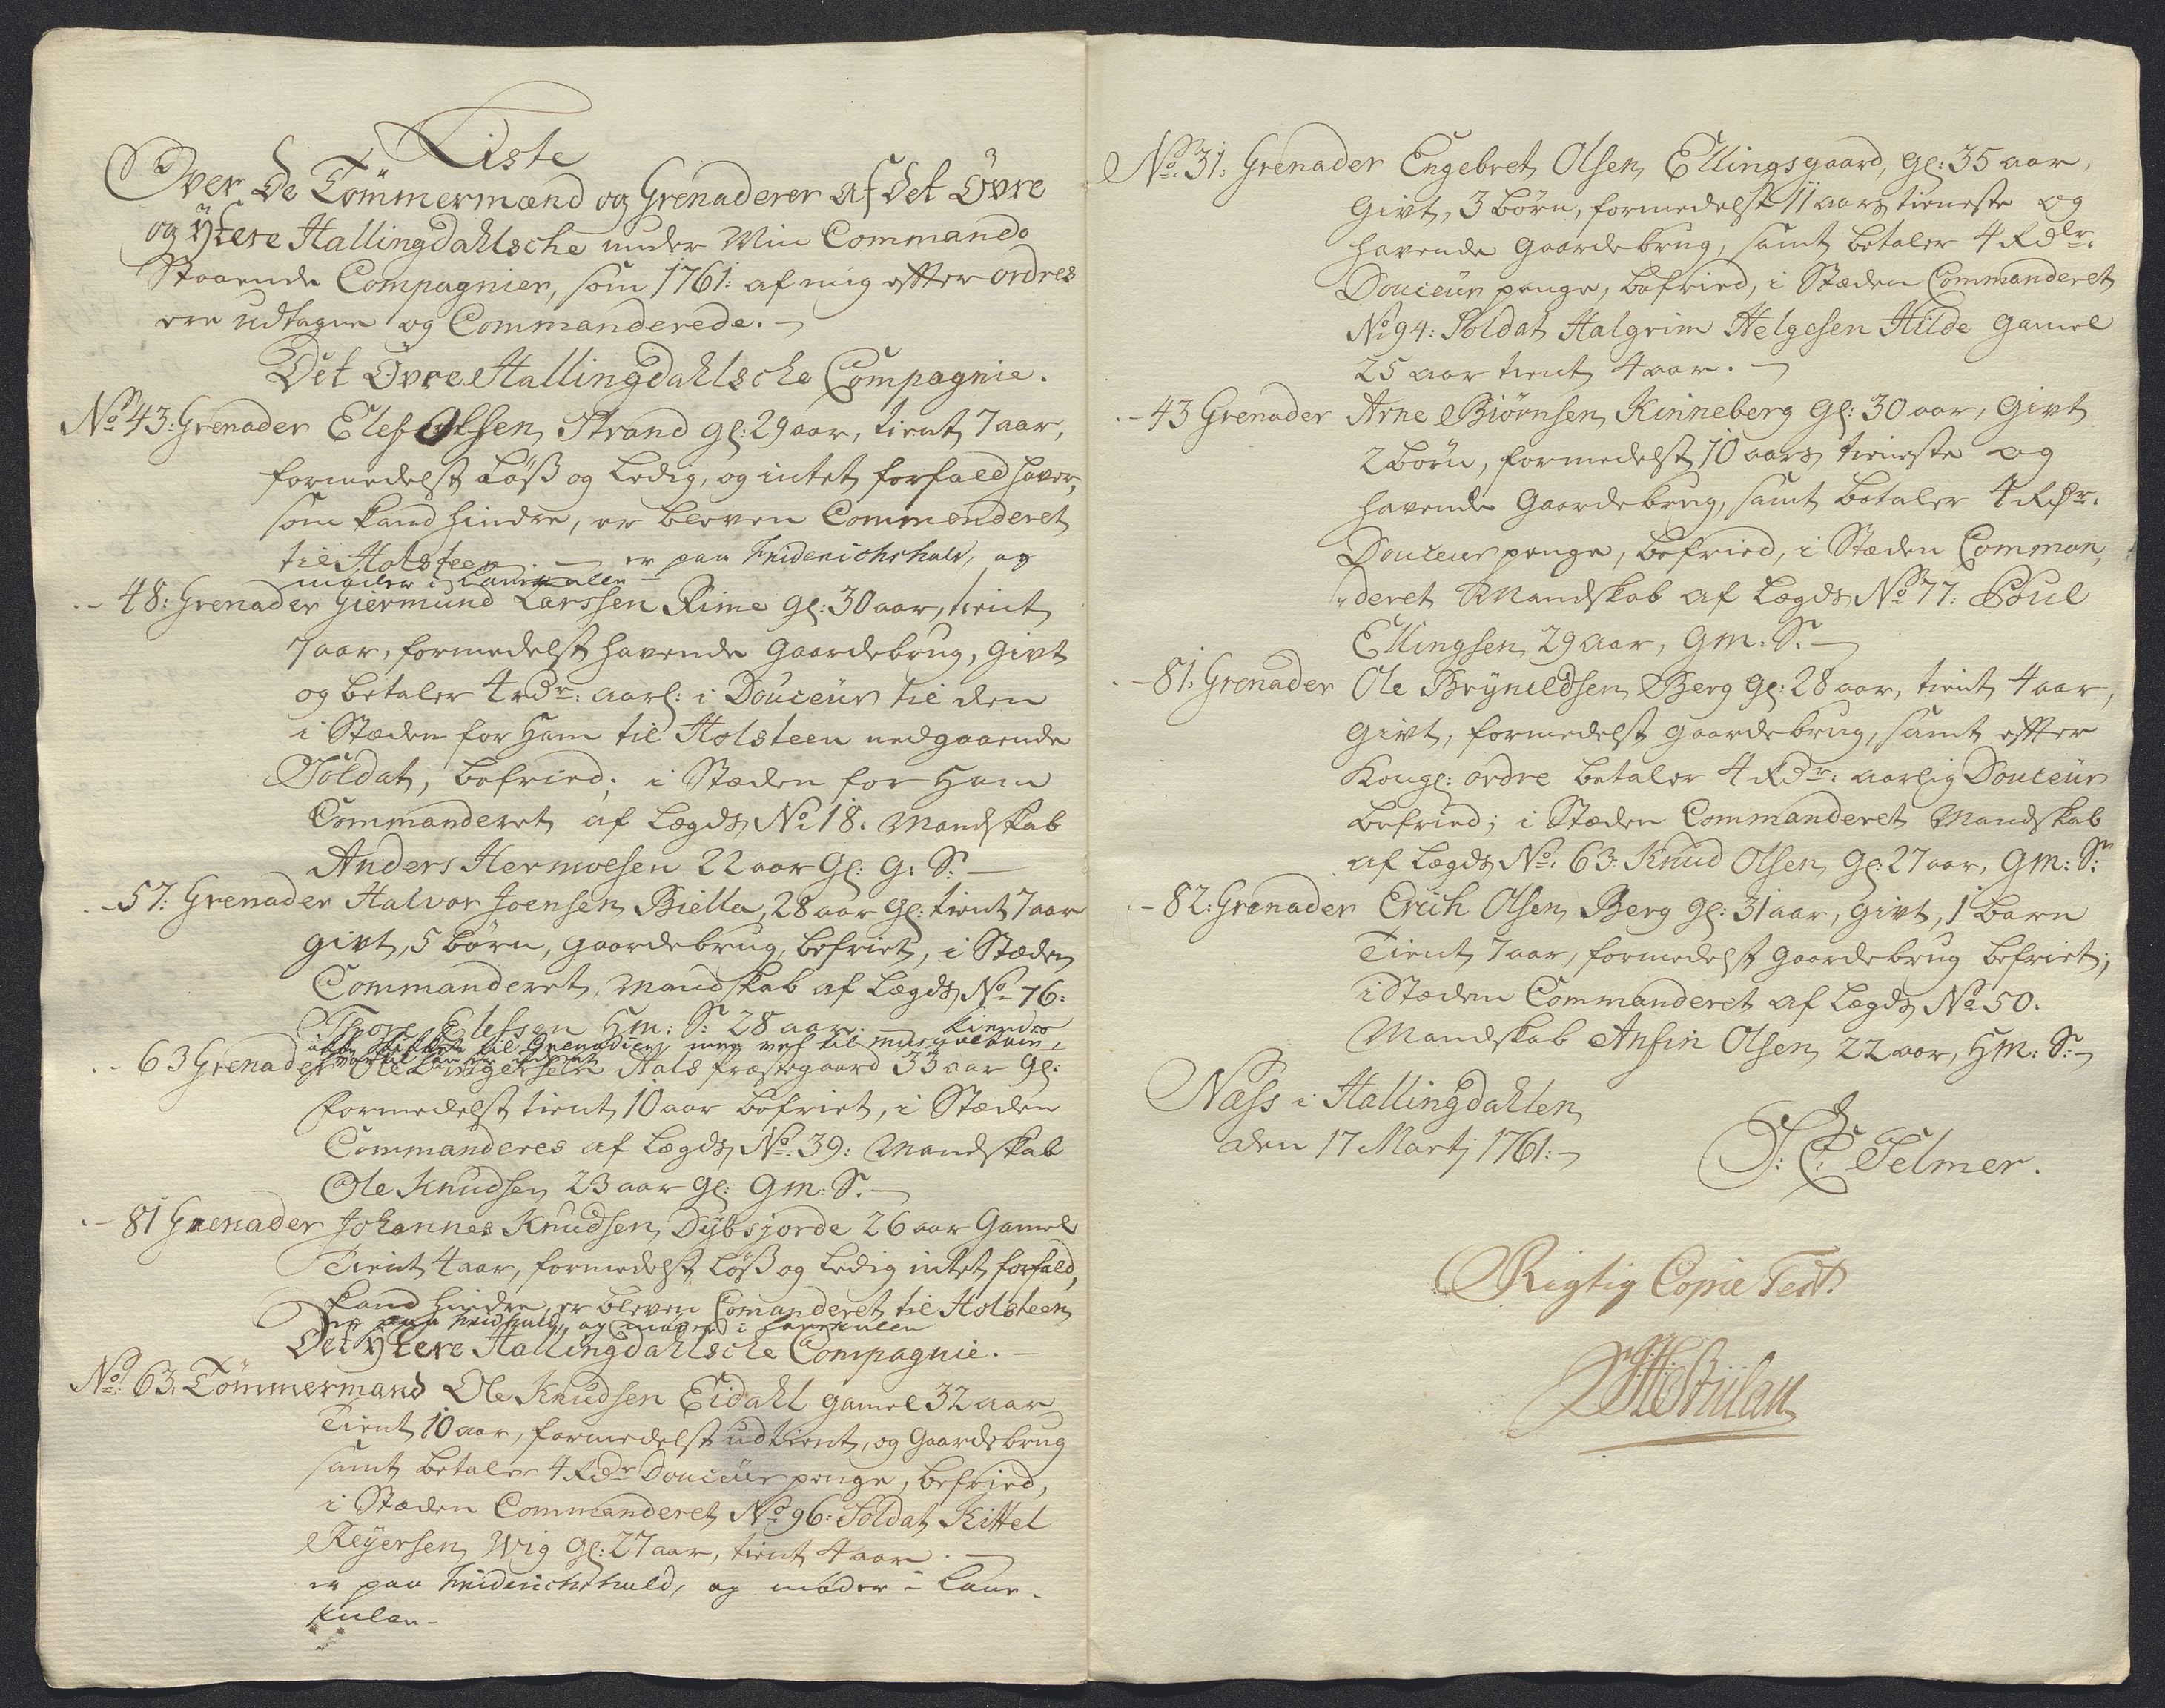 Liste
Over De Tömmermænd og Grenaderer af Det Övre
og ÿtere Hallingdahlsche under Min Commando
Staaende Compagnier, som 1761: af mig efter ordres
ere udtagne og Commanderede.
Det Övre Hallingdahlsche Compagnie.
No 43: Grenader Elef Olsen Strand gl: 29 aar, tient 7 aar,
formedelst Löß og Ledig, og intet forfald haver,
som kand hindre, er bleven Commenderet
til Holsteen. er paa Friderichshald, og
møder i
48: Grenader Giermund Larssen Rime gl: 30 aar, tient
7 aar, formedelst havende Gaardebrug, givt
og betaler 4 rdr: aarl: i Douceur til den
i Stæden for Ham til Holsteen nedgaaende
Soldat, befried; i Stæden for Ham
Commanderet af Lægds No 18. Mandskab
Anders Hermoesen 22 aar Gl: G: S:
57: Grenader Halvor Joensen Biella, 28 aar gl: tient 7 aar
givt, 5 börn, gaardebrug, befriet, i Stæden
Commanderet, Mandskab af Lægds No 76:
Thore Elefsen Hm: S: 28 aar. kiendes
ikke til Grenadier, men vel til musqueteer,
63 Grenader Ole Hals Præstegaard 33 aar gl:
formedelst tient 10 aar befriet, i Stæden
Commanderes af Lægds No: 39: Mandskab
Ole Knudsen 23 aar gl: Gm: S.
81 Grenader Johannes Knudsen Dÿbsjorde 26 aar Gamel
Tient 4 aar, formedelst Löß og Ledig intet forfald,
kand hindre, er bleven Comanderet til Holsteen
er paa Fridhald, og møder i
Det ÿtere Hallingdahlsche Compagnie.
No: 63. Tömmermand Ole Knudsen Eidahl gamel 32 aar
Tient 10 aar, formedelst udtient, og Gaardebrug
samt betaler 4 Rdr Douceur penge, befried,
i Stæden Commanderet No 96: Soldat Kittel
Reÿersen Wig gl: 27 aar, tient 4 aar.
er paa Friderichshald, og møder i Laur-
kulen-
No. 31: Grenader Engebret Olsen Ellingsgaard, gl: 35 aar,
Givt, 3 börn, formedelst 11 aars tieneste og
havende Gaardebrug, samt betaler 4 Rdlr.
Douceur penge, befried, i Stæden Commanderet
No 94: Soldat Halgrim Helgesen Hilde gamel
25 aar tient 4 aar.
43 Grenader Arne Biörnsen Kinneberg gl: 30 aar, Givt
2 börn, formedelst 10 aars tieneste og
havende Gaardebrug, samt betaler 4 Rdr.
Douceur penge, befried, i Stæden Comman,
deret Mandskab af Lægds No 77: Poul
Ellingsen 29 aar, Gm: S.
81: Grenader Ole Brÿnildsen Berg gl: 28 aar, tient 4 aar,
Givt, formedelst gaardebrug, samt efter
Kongl: ordre betaler 4 Rdr: aarlig Douceur
befried; i Stæden Commanderet Mandskab
af Lægds No. 63. Knud Olsen gl: 27 aar, Gm: S:
82: Grenader Erich Olsen Berg gl: 31 aar, givt, 1 barn
Tient 7 aar, formedelst gaardebrug befriet;
i Stæden Commanderet af Lægds No 50.
Mandskab Ansin Olsen 22 aar, Hm: S:
Næss i Hallingdahlen
den 17 Martj 1761:
J: C: Telmer.
Rigtig Copie Test.